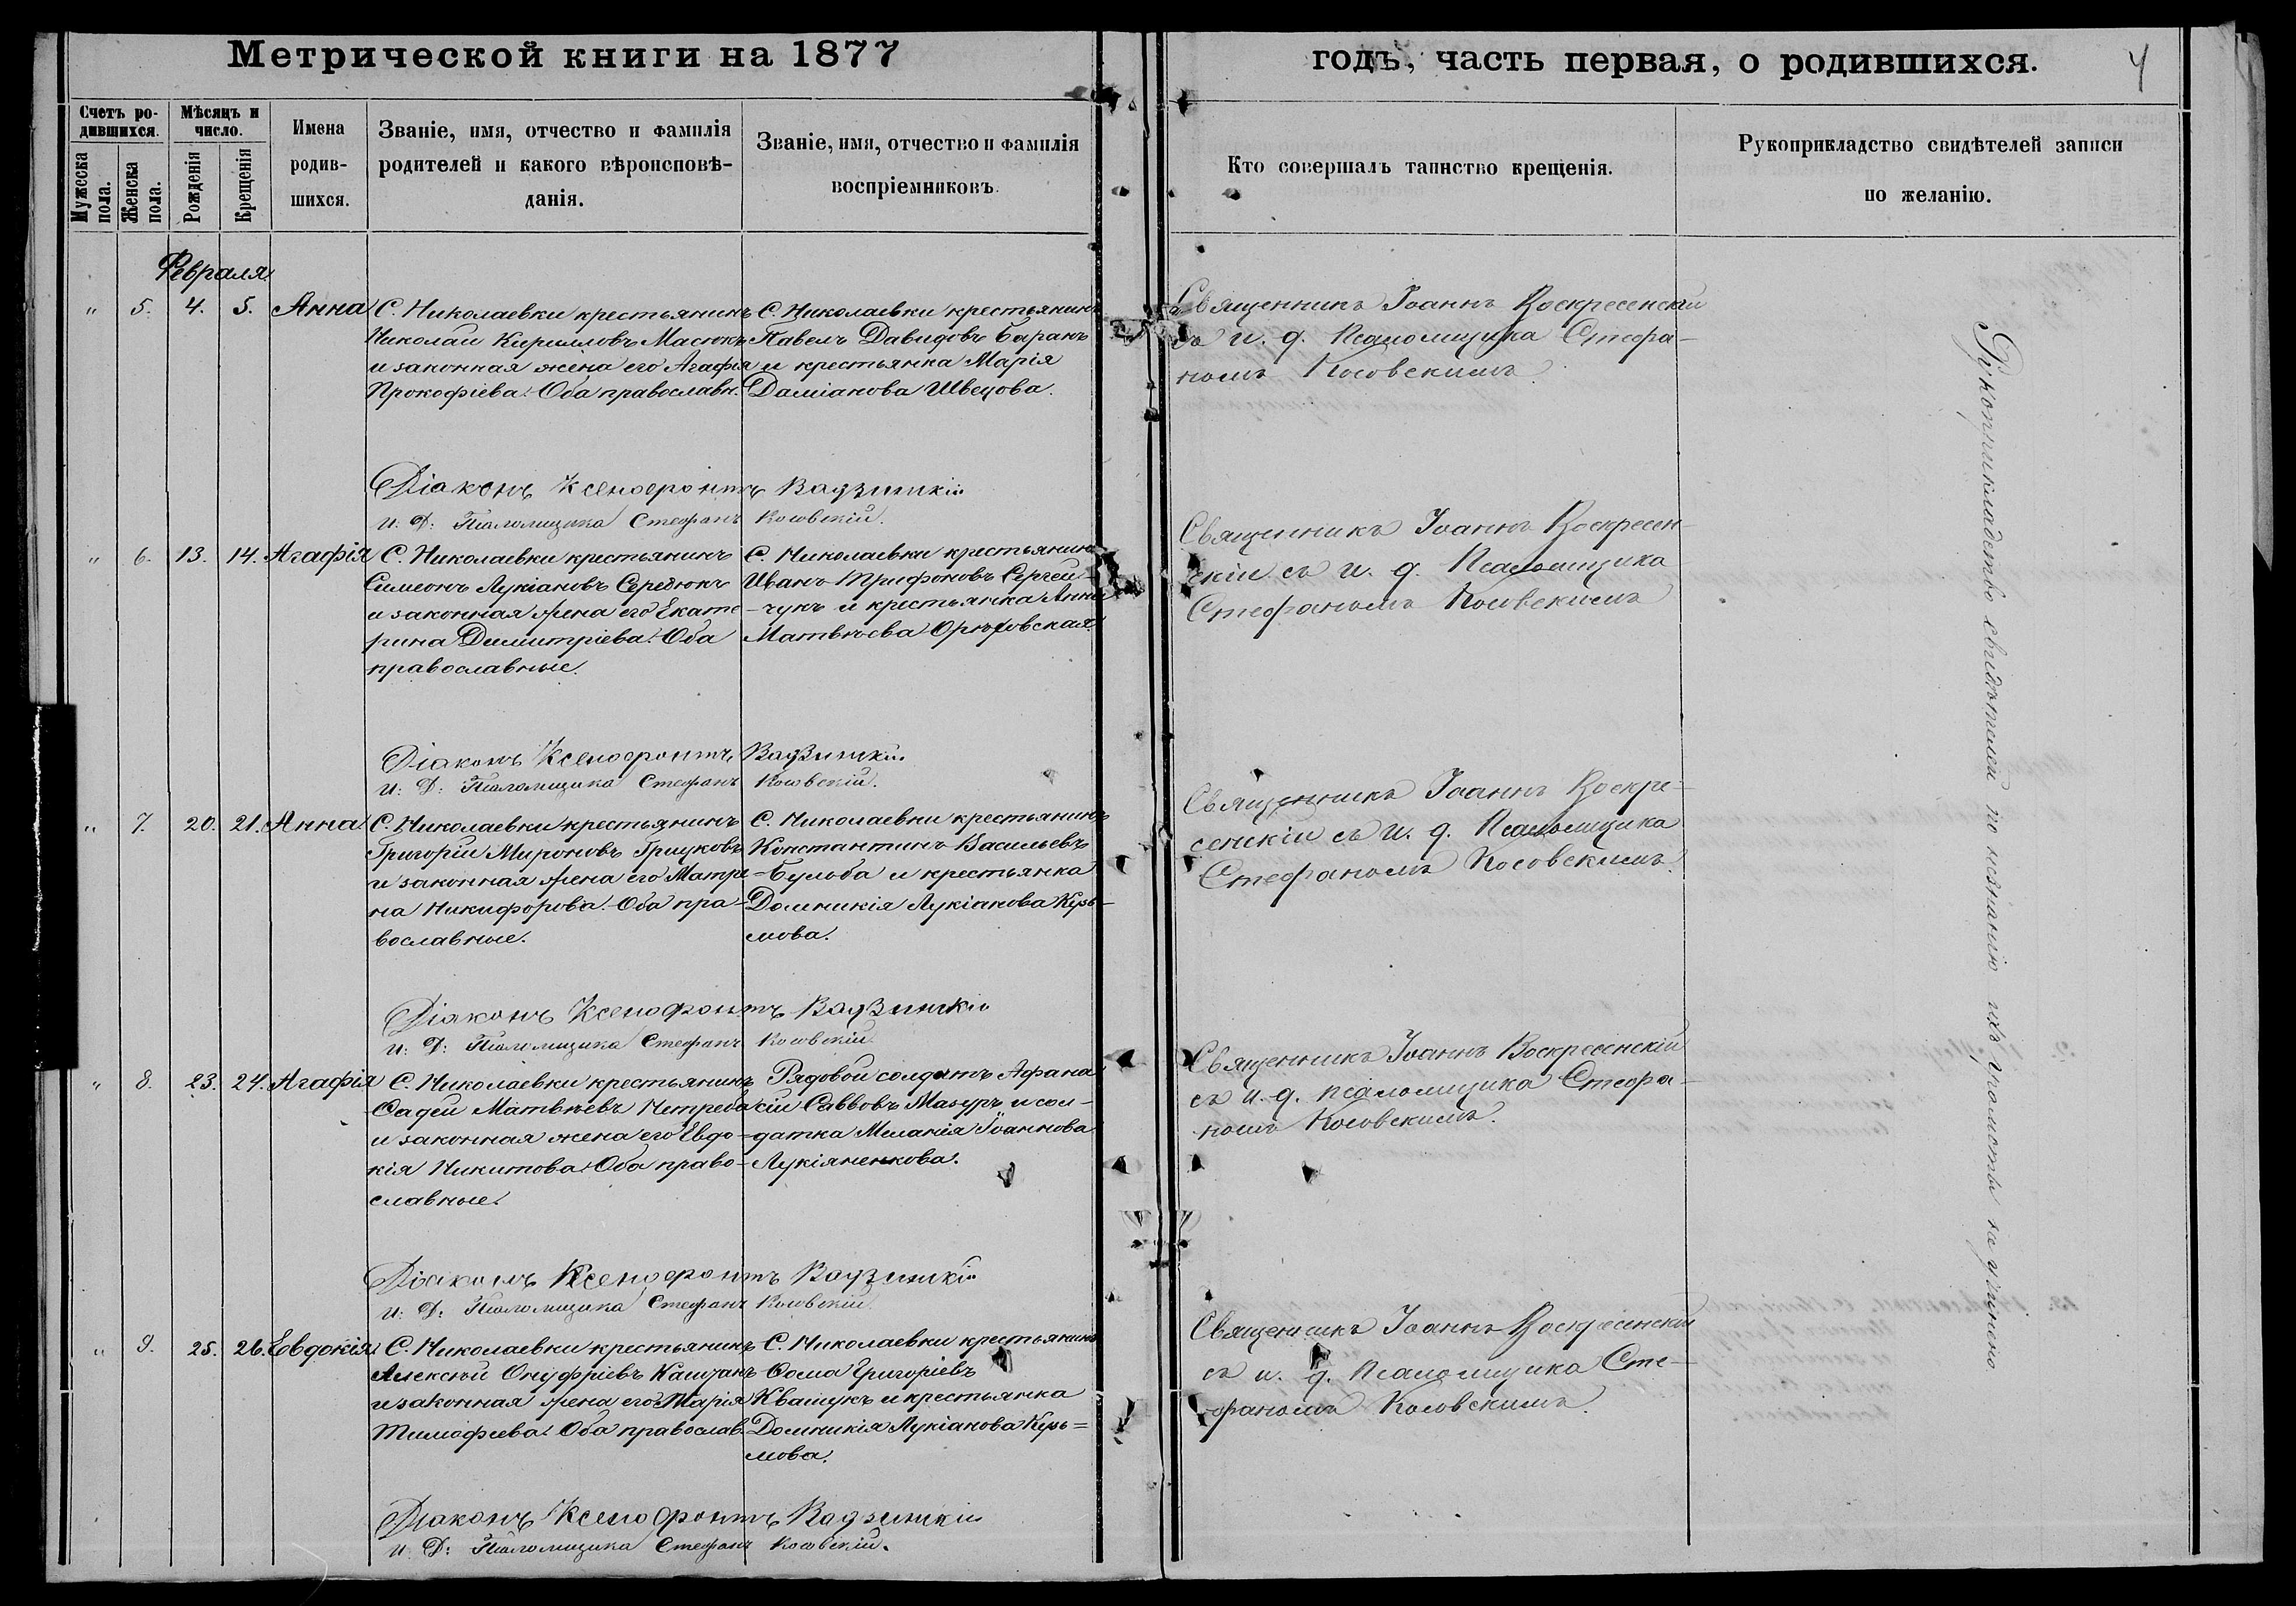 Метрической книги на 1877
годъ, часть первая, о родившихся.
4
Счетъ ро-
дившихся.
Мужеска
пола.
Женска
пола.
Мѣсяцъ и
число.
Рожденія
Крещенія
Имена
родив-
шихся.
Званіе, имя, отчество и фамилія
родителей и какого вѣроисповѣ-
данія.
Званіе, имя, отчество и фамилія
воспріемниковъ.
Кто совершалъ таинство крещенія.
Рукоприкладство свидѣтелей записи
по желанію.
Февраля.
" 5. 4. 5. Анна
С. Николаевки крестьянинъ
Николай Кирилловъ Масюкъ
и законная жена его Агафія
Прокофіева. Оба православн.
С. Николаевки крестьянинъ
Павелъ Давидовъ Баранъ
и крестьянка Марія
Даміанова Швецова.
Священникъ Іоаннъ Воскресенскій
съ и. д. Псаломщика Стефа-
номъ Косовскимъ.
Діаконъ Ксенофонтъ
и. Д: Псаломщика Стефанъ Косовскій.
" 6. 13. 14. Агафія
С. Николаевки крестьянинъ
Симеонъ Лукіановъ Середюкъ
и законная жена его Екате-
рина Димитріева. Оба
православные.
С. Николаевки крестьянинъ
Иванъ Трифоновъ Сергей-
чукъ и крестьянка Анна
Матвѣева Орѣховская.
Священникъ Іоаннъ Воскресен-
скій съ и. д. Псаломщика
Стефаномъ Косовскимъ
Діаконъ Ксенофонтъ
и. Д: Псаломщика Стефанъ Косовскій.
" 7. 20. 21. Анна.
С. Николаевки крестьянинъ
Григорій Мироновъ Грицковъ
и законная жена его Матре-
на Никифорова. Оба пра-
вославные.
С. Николаевки крестьянинъ
Константинъ Васильевъ
Бульба и крестьянка
Домникія Лукіанова Кузь-
мова.
Священникъ Іоаннъ Воскре-
сенскій съ и. д. Псаломщика
Стефаномъ Косовскимъ.
Діаконъ Ксенофонтъ
и: Д: Псаломщика Стефанъ Косовскій
" 8. 23. 24. Агафія
С. Николаевки крестьянинъ
Фадей Матвѣевъ Нетреба
и законная жена его Евдо-
кія Никитова. Оба право-
славные.
Рядовой солдатъ Афана
сій Саввовъ Мазуръ и сол-
датка Меланія Іоаннова
Лукіяненкова.
Священникъ Іоаннъ Воскресенскій
съ и. д. псаломщика Стефа-
номъ Косовскимъ.
Діаконъ Ксенофонтъ
и: Д: Псаломщика Стефанъ Косовскій
" 9. 25. 26. Евдокія
С. Николаевки крестьянинъ
Алексѣй Онуфріевъ Каштанъ
и законная жена его Марія
Тимофеева. Оба православ.
С. Николаевки крестьянинъ
Фома Григоріевъ
Квашукъ и крестьянка
Домникія Лукіанова Кузь=
мова.
Священникъ Іоаннъ Воскресенскій
съ и. д. Псаломщика Сте-
фаномъ Косовскимъ.
Діаконъ Ксенофонтъ
и. Д: Псаломщика Стефанъ Косовскій.
Рукоприкладство свидѣтелей по незнанію ихъ грамоты не учинено